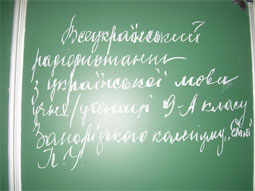 Всеукраїнський
радіодиктант
з української мови
учня (учениці) 9-А класу
Запорізького колегіуму
П.